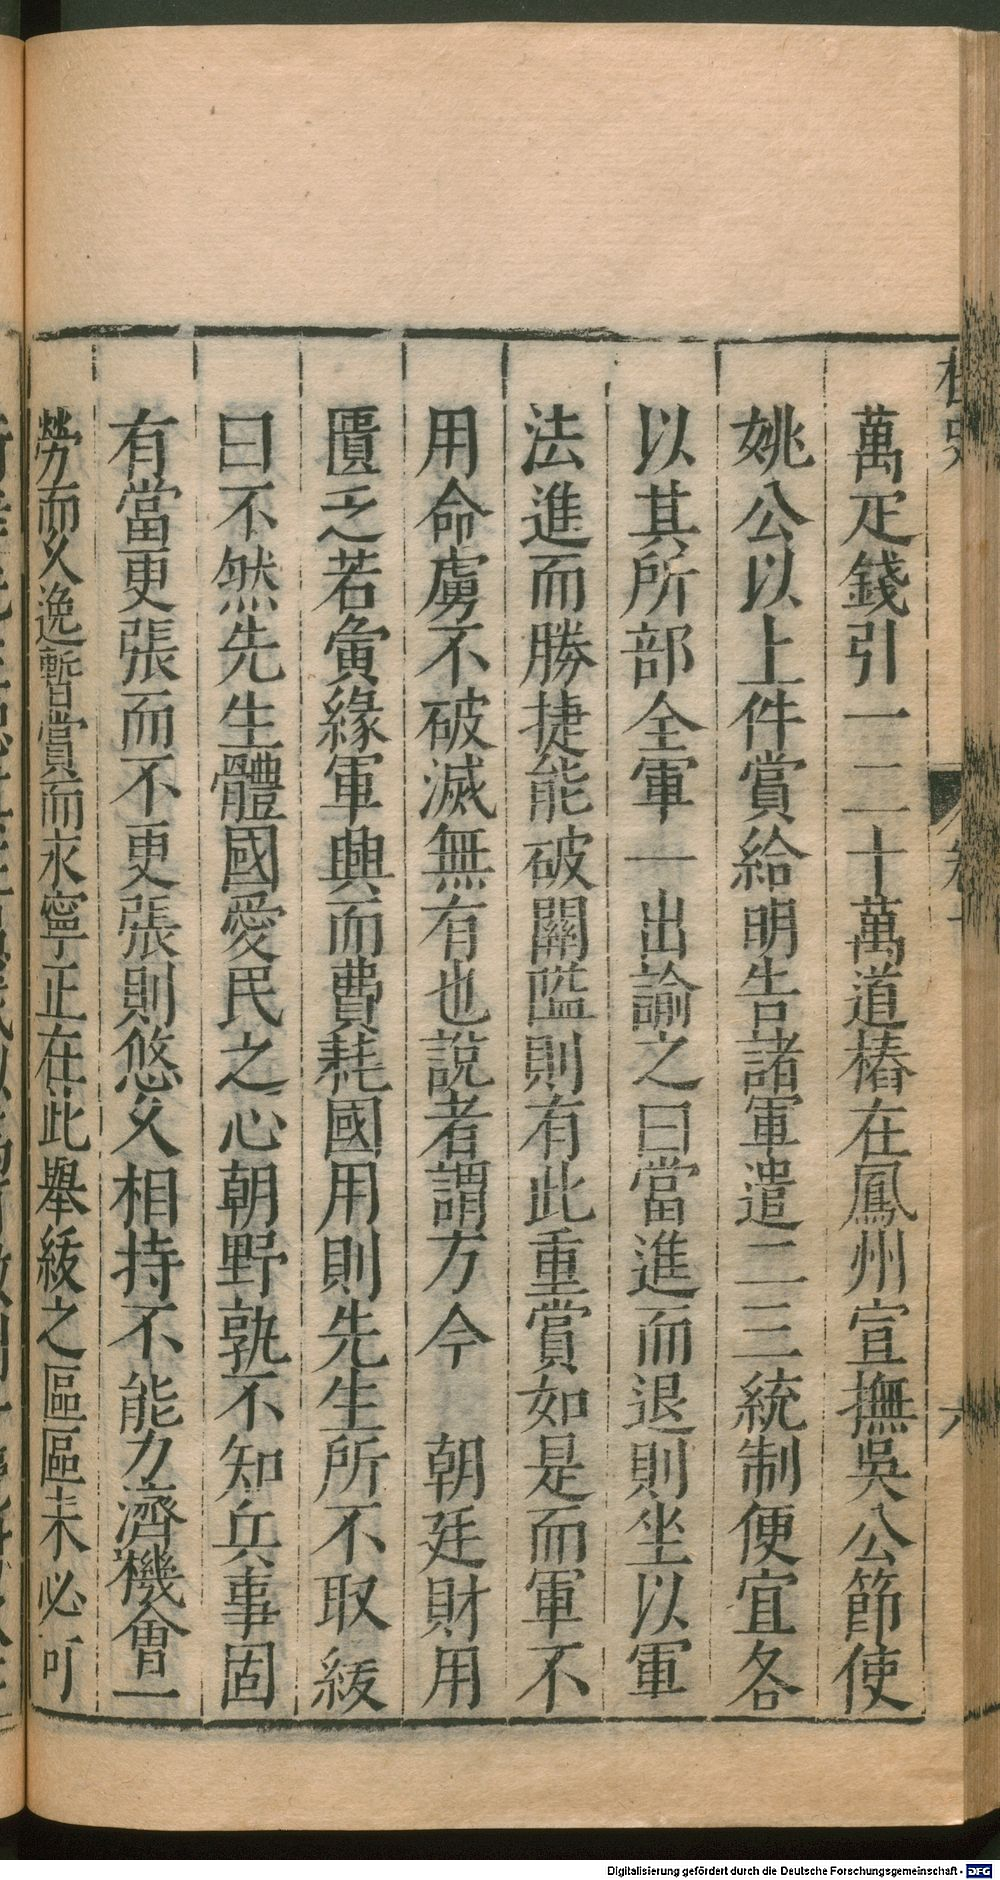 萬疋錢引一二十萬道樁在鳳州宣撫吳公節使
姚公以上件賞給明告諸軍遣二三統制便宜各
以其所部全軍一出諭之曰當進而退則坐以軍
法進而勝捷能破關隘則有此重賞如是而軍不
用命虜不破滅無有也說者謂方今　朝廷財用
匱乏若夤緣軍興而費耗國用則先生所不取綏
曰不然先生體國愛民之心朝野孰不知兵事固
有當更張而不更張則悠久相持不能力濟機會一
勞而久逸暫賞而求寧正在此舉綏之區區未必可
Digitalisierung gefördert durch die Deutsche Forschungsgemeinschaft - DFG